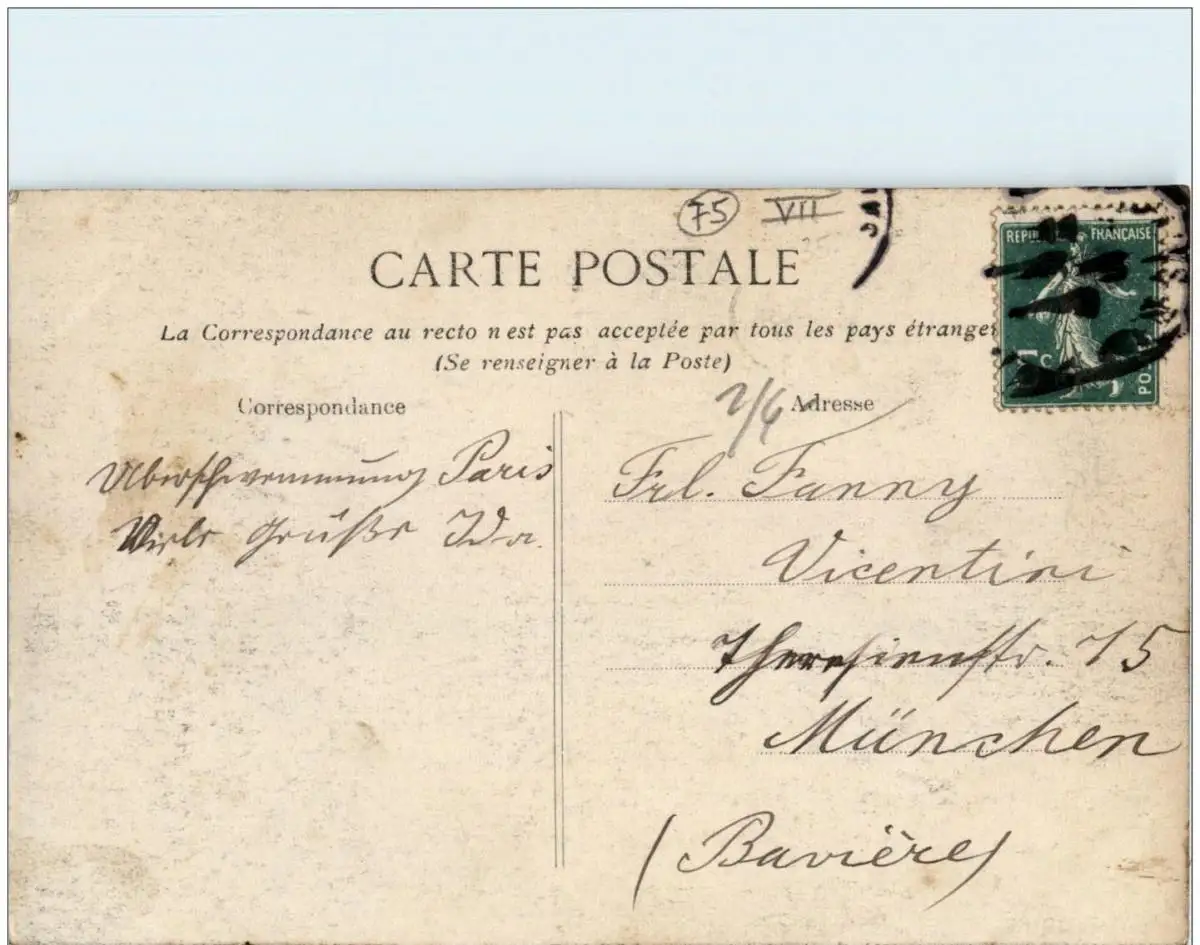 75 VII
CARTE POSTALE
REPUBLIQUE FRANÇAISE
La Correspondance au recto n'est pas acceptée par tous les pays étranger
(Se renseigner à la Poste)
5c
Correspondance
Adresse
Überschwemmung Paris
Viele Grüße Ida.
Frl. Fanny
Vicentini
Theresienstr. 75
München
(Bavière)